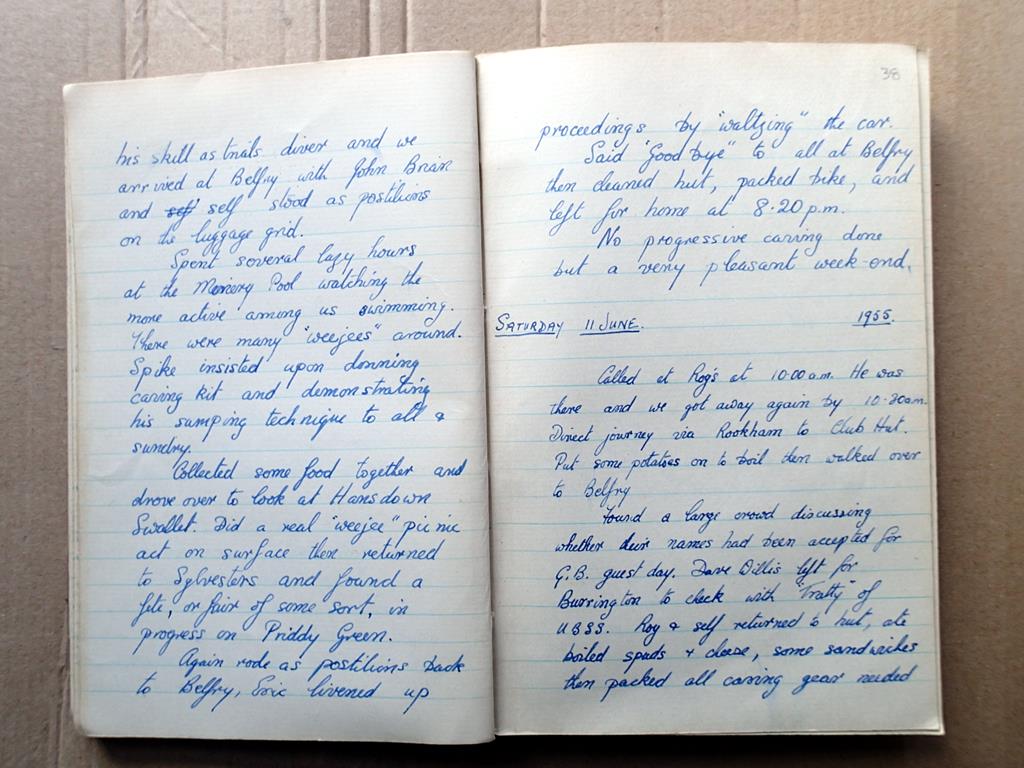 his skill as trials diver and we
arrived at Belfry with John Brian
and self self stood as postilions
on the luggage grid.
Spent several lazy hours
at the Minery Pool watching the
more active among us swimming.
There were many "weejees" around.
Spike insisted upon donning
caving kit and demonstrating
his sumping technique to all &
sundry.
Collected some food together and
drove over to look at Hansdown
Swallet. Did a real "weejee" picnic
act on surface then returned
to Sylvesters and found a
fete, or fair of some sort, in
progress on Priddy Green.
Again rode as postilions back
to Belfry, Eric livened up
38
proceedings by "waltzing" the car.
Said "Good bye" to all at Belfry
then cleaned hut, packed bike, and
left for home at 8.20 p.m.
No progressive caving done
but a very pleasant week-end.
SATURDAY 11 JUNE. 1955.
Called at Rog's at 10.00 a.m. He was
there and we got away again by 10.30am.
Direct journey via Rookham to Club Hut.
Put some potatoes on to boil then walked over
to Belfry
Found a large crowd discussing
whether their names had been accepted for
G.B. guest day. Dave Willis left for
Burrington to check with "Tratty" of
UBSS. Rog & self returned to hut, ate
boiled spuds & cheese, some sandwiches
then packed all caving gear needed